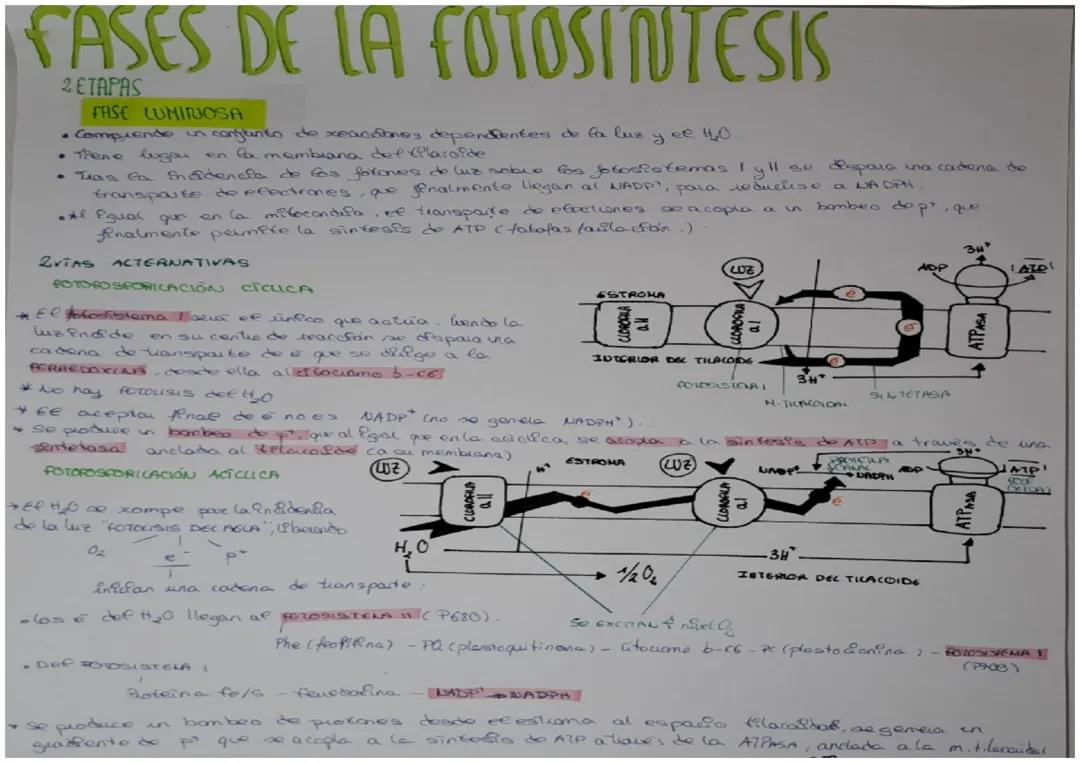 FASES DE LA FOTOSÍNTESIS
2 ETAPAS
FASE LUMINOSA
• Comprende un conjunto de reacciones dependientes de la luz y el H₂O.
• Tiene lugar en la membrana del tilacoide.
• Tras la incidencia de los fotones de luz sobre los fotosistemas I y II se dispara una cadena de
transporte de electrones, que finalmente llegan al NADP⁺, para reducirse a NADPH.
• Al igual que en la mitocondria, el transporte de electrones se acopla a un bombeo de p⁺, que
finalmente permite la síntesis de ATP (fotofosforilación.)
2 VÍAS ALTERNATIVAS
FOTOFOSFORILACIÓN CÍCLICA
* El fotosistema I será el único que actúa. Cuando la
luz incide en su centro de reacción se dispara una
cadena de transporte de é que se dirige a la
FERREDOXINA, desde ella al citocromo b-c6
* No hay FOTOLISIS del H₂O
* El aceptor final de é no es NADP⁺ (no se genera NADPH⁺).
* Se produce un bombeo de p⁺, que al igual que en la acíclica, se acopla a la síntesis de ATP a través de una
sintetasa anclada al tilacoide (a su membrana)
LUZ
ESTROMA
CLOROFILA a II
CLOROFILA a I
é
é
é
ADP
3H⁺
ATP
ATPASA
INTERIOR DEL TILACOIDE
FOTOSISTEMA I
M-TILACOIDAL
3H⁺
SINTETASA
FOTOFOSFORILACIÓN ACÍCLICA
* El H₂O se rompe por la incidencia
de la luz "FOTOLISIS DEL AGUA", liberando
O₂ e⁻ p⁺
inician una cadena de transporte.
LUZ
H⁺
ESTROMA
LUZ
NADP⁺
PROTEINA CANAL
NADPH
ADP
3H⁺
ATP
CLOROFILA a II
é
CLOROFILA a I
é
ATPASA
H₂O
3H⁺
½ O₂
INTERIOR DEL TILACOIDE
SE EXCITAN
• Los é del H₂O llegan al FOTOSISTEMA II (P680).
Phe (feofitina) - PQ (plastoquinona) - Citocromo b-c6 - Pc (plastocianina) - FOTOSISTEMA I
(P700)
• Del FOTOSISTEMA I
Proteína fe/s - ferredoxina - NADP⁺ → NADPH
* Se produce un bombeo de protones desde el estroma al espacio tilacoidal, se genera un
gradiente de p⁺ que se acopla a la síntesis de ATP a través de la ATPASA, anclada a la m. tilacoidal